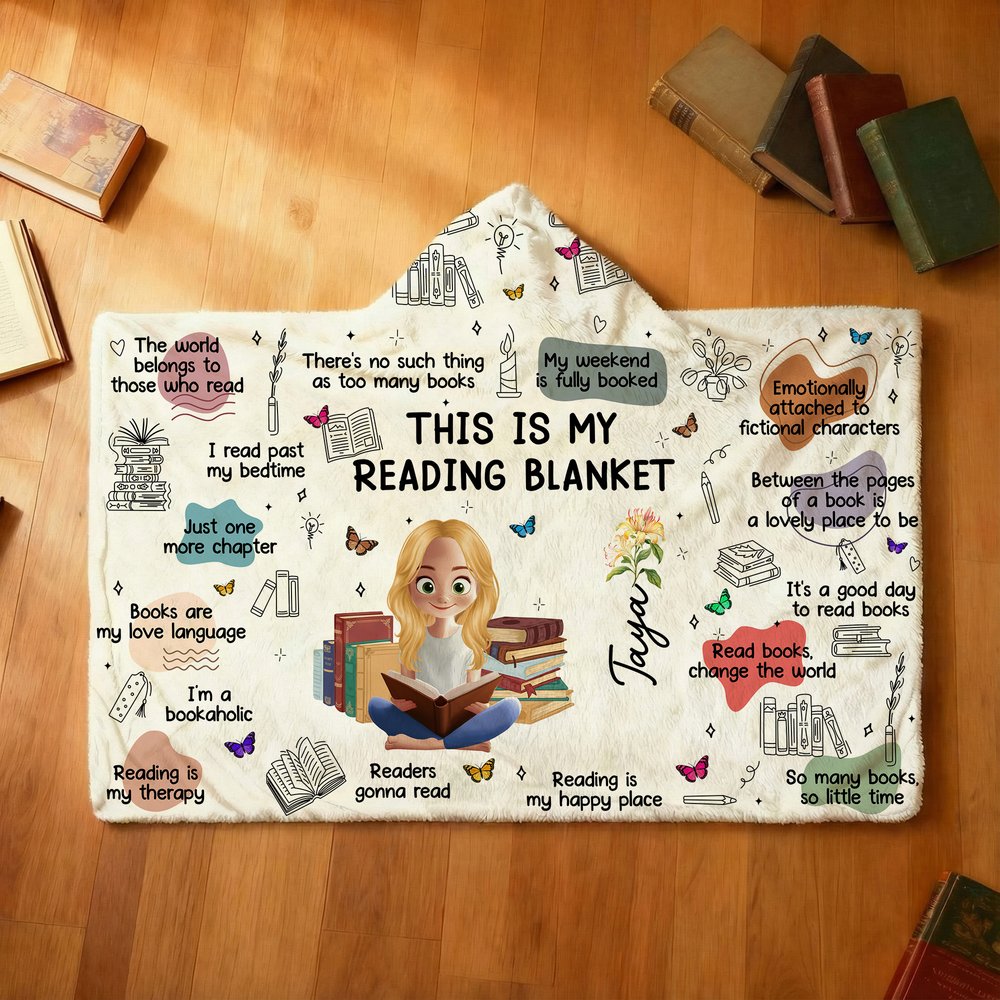 The world
belongs to
those who read
There's no such thing
as too many books
My weekend
is fully booked
Emotionally
attached to
fictional characters
THIS IS MY
READING BLANKET
I read past
my bedtime
Between the pages
of a book is
a lovely place to be
Just one
more chapter
It's a good day
to read books
Books are
my love language
Taya
Read books,
change the world
I'm a
bookaholic
Reading is
my therapy
Readers
gonna read
Reading is
my happy place
So many books,
so little time